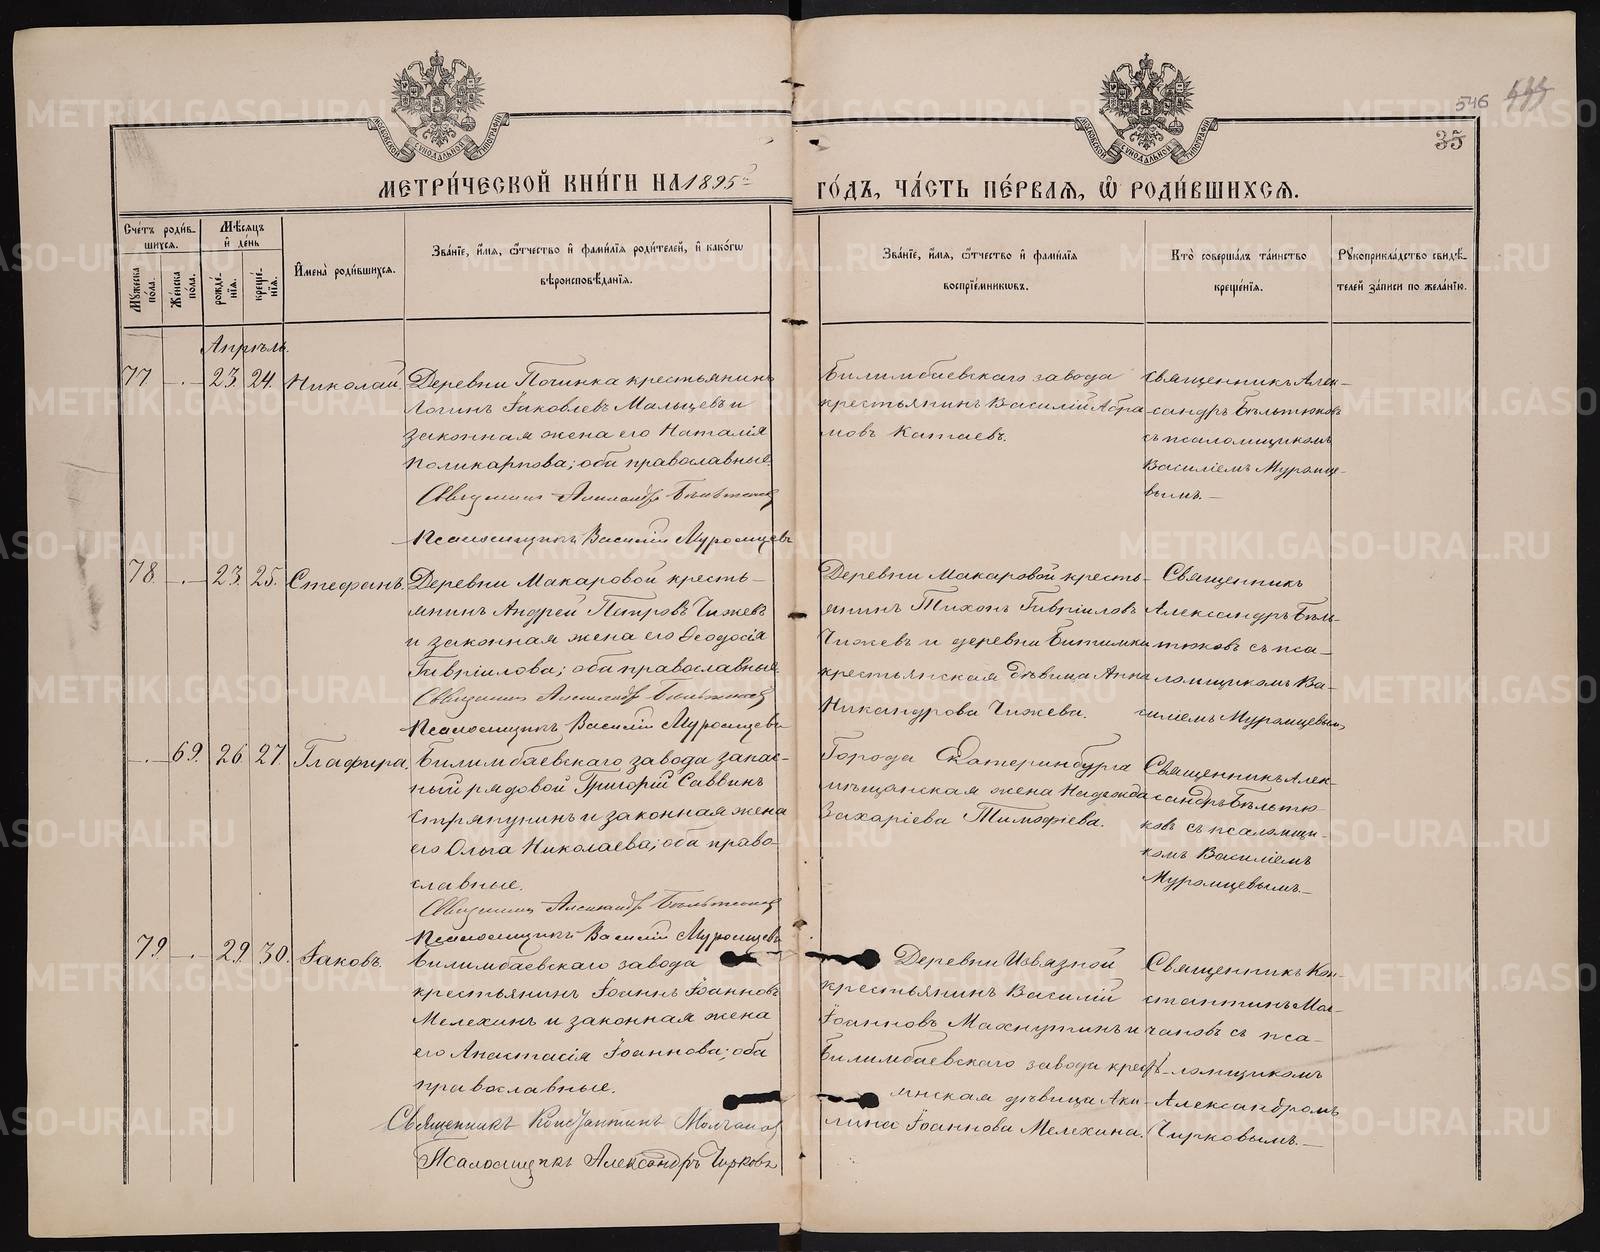 546
35
МЕТРИ́ЧЕСКОЙ КНИ́ГИ НА 1895й
ГО́ДЪ, ЧА́СТЬ ПЕ́РВАѦ, Ѽ РОДИ́ВШИХСѦ.
Сче́тъ роди́в-
шихсѧ.
Мѣ́сѧцъ
и҆ де́нь
Мꙋ́жеска по́ла.
Же́нска по́ла.
рожде́-
нїѧ.
креще́-
нїѧ.
И҆мена̀ роди́вшихсѧ.
Зва́нїе, и҆́мѧ, ѻ҆́тчество и҆ фами́лїѧ роди́телей, и҆ како́гѡ
вѣроисповѣ́данїѧ.
Зва́нїе, и҆́мѧ, ѻ҆́тчество и҆ фами́лїѧ
воспрїе́мникѡвъ.
Кто̀ соверша́лъ та́инство
креще́нїѧ.
Рꙋкоприкла́дство свидѣ́-
телей за́писи по жела́нїю.
Апрѣль.
77 -.- 23. 24. Николай.
Деревни Починка крестьянинъ
Логинъ Іаковлевъ Мальцевъ и
законная жена его Наталія
Поликарпова; оба православные.
Священникъ Александръ Бѣльтюковъ
Псаломщикъ Василій Муромцевъ
Билимбаевскаго завода
крестьянинъ Василій Абра
мовъ Катаевъ.
Священникъ Алек-
сандръ Бѣльтюковъ
съ псаломщикомъ
Василіемъ Муромце-
вымъ.-
78. -.- 23. 25. Стефанъ.
Деревни Макаровой кресть-
янинъ Андрей Петровъ Чижевъ
и законная жена его Ѳеодосія
Гавріилова; оба православные.
Священникъ Александръ Бѣльтюковъ
Псаломщикъ Василій Муромцевъ
Деревни Макаровой кресть-
янинъ Тихонъ Гавріиловъ
Чижевъ и деревни Битимки
крестьянская дѣвица Анна
Никандрова Чижева.
Священникъ
Александръ Бѣль-
тюковъ съ пса-
ломщикомъ Ва-
силіемъ Муромцевымъ
-.- 69. 26. 27. Глафира.
Билимбаевскаго завода запас-
ный рядовой Григорій Саввинъ
Стряпунинъ и законная жена
его Ольга Николаева; оба право-
славные.
Священникъ Александръ Бѣльтюковъ
Псаломщикъ Василій Муромцевъ
Города Екатеринбурга
мѣщанская жена Надежда
Захаріева Тимофіева.
Священникъ Алек-
сандръ Бѣльтю-
ковъ съ псаломщи-
комъ Василіемъ
Муромцевымъ.-
79. -.- 29. 30. Іаковъ.
Билимбаевскаго завода
крестьянинъ Іоаннъ Іоанновъ
Мелехинъ и законная жена
его Анастасія Іоаннова; оба
православные.
Священникъ Константинъ Молчановъ
Псаломщикъ Александръ Чирковъ
Деревни Извязной
крестьянинъ Василій
Іоанновъ Махнутинъ и
Билимбаевскаго завода кресть-
янская дѣвица Аки-
лина Іоаннова Мелехина.
Священникъ Кон-
стантинъ Мол-
чановъ съ пса-
ломщикомъ
Александромъ
Чирковымъ.-